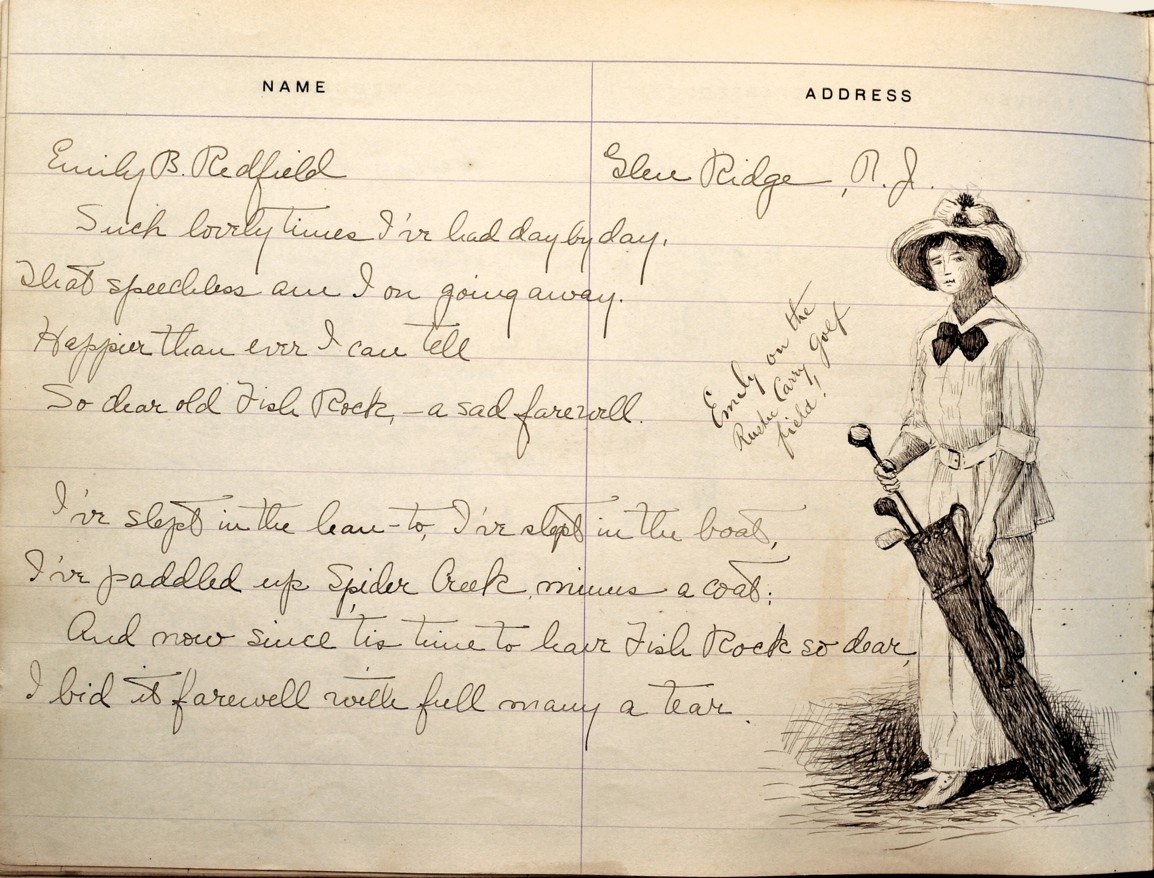 NAME
ADDRESS
Emily B. Redfield
Glen Ridge, N. J.
Such lovely times I've had day by day,
That speechless am I on going away.
Happier than ever I can tell
So dear old Fish Rock, – a sad farewell.
Emily on the
Rustic Carry golf
field!
I've slept in the lean-to, I've slept in the boat,
I've paddled up Spider Creek, minus a coat;
And now since 'tis time to leave Fish Rock so dear,
I bid it farewell with full many a tear.